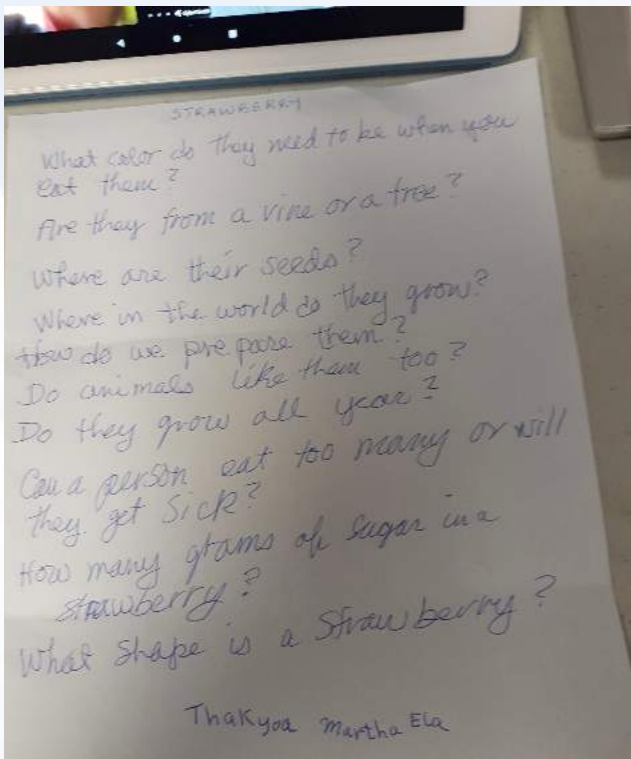 STRAWBERRY
What color do they need to be when you
eat them?
Are they from a vine or a tree?
Where are their seeds?
Where in the world do they grow?
How do we prepare them?
Do animals like them too?
Do they grow all year?
Can a person eat too many or will
they get sick?
How many grams of sugar in a
strawberry?
What shape is a strawberry?
Thakyoa Martha Ela